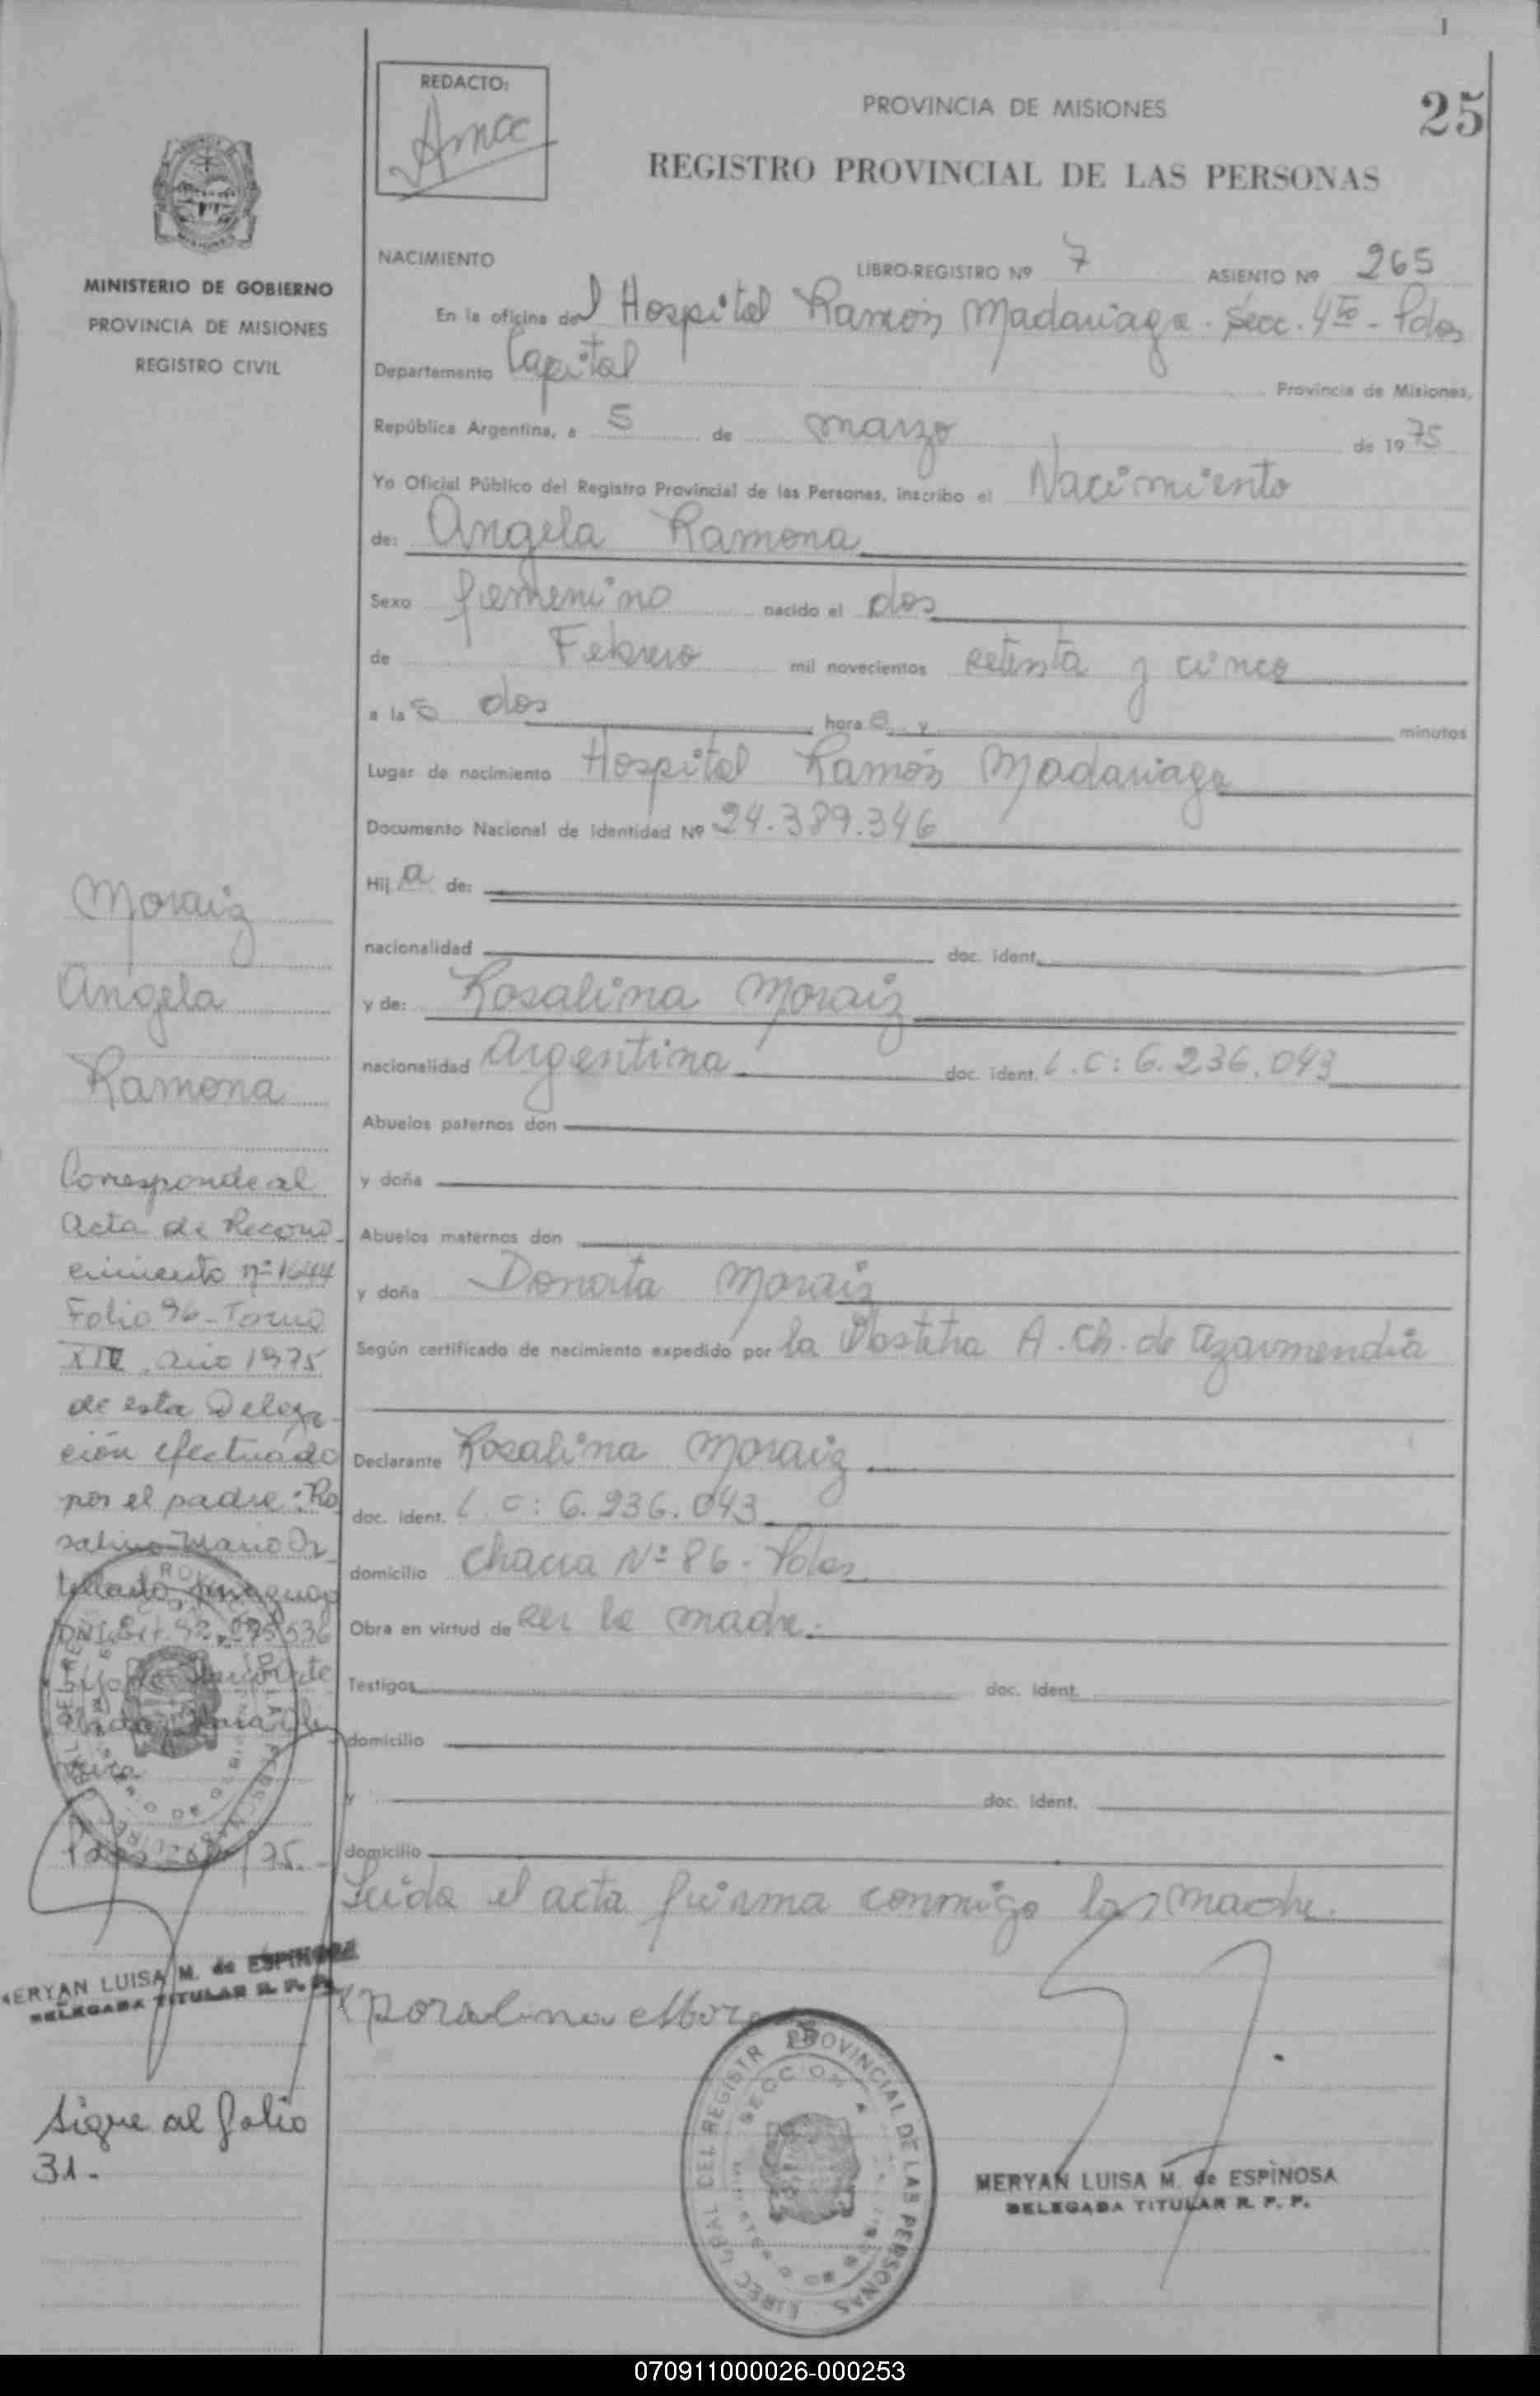 1
REDACTO:
Amcc
PROVINCIA DE MISIONES
25
REGISTRO PROVINCIAL DE LAS PERSONAS
MINISTERIO DE GOBIERNO
PROVINCIA DE MISIONES
REGISTRO CIVIL
NACIMIENTO
LIBRO-REGISTRO Nº 7 ASIENTO Nº 265
En la oficina del Hospital Ramón Madariaga - Secc. 4ta - Pdas
Departamento Capital Provincia de Misiones,
República Argentina, a 5 de marzo de 1975
Yo Oficial Público del Registro Provincial de las Personas, inscribo el Nacimiento
de: Angela Ramona
Sexo femenino nacido el dos
de Febrero mil novecientos setenta y cinco
a las dos horas y minutos
Lugar de nacimiento Hospital Ramón Madariaga
Documento Nacional de Identidad Nº 24.389.346
Hija de:
nacionalidad doc. ident.
y de: Rosalina Moraiz
nacionalidad Argentina doc. ident. L.C: 6.236.043
Abuelos paternos don
y doña
Abuelos maternos don
y doña Donata Moraiz
Según certificado de nacimiento expedido por la Obstetra A. Ch. de Azarmendia
Declarante Rosalina Moraiz
doc. ident. L.C: 6.236.043
domicilio Chacra Nº 86 - Pdas.
Obra en virtud de ser la madre.
Testigos doc. ident.
domicilio
y doc. ident.
domicilio
Leida el acta firma conmigo la madre.
Rosalina Mora
MERYAN LUISA M. de ESPINOSA
DELEGADA TITULAR R. P. P.
Moraiz
Angela
Ramona
Corresponde al
acta de Recono
cimiento nº 1644
Folio 96 - Tomo
XIV año 1975
de esta Delega
ción efectuado
por el padre: Ro
salino Mario
MERYAN LUISA M. de ESPINOSA
DELEGADA TITULAR R. P. P.
Sigue al folio
31.
DIREC GRAL DEL REGISTR PROVINCIAL DE LAS PERSONAS
SECCION
070911000026-000253